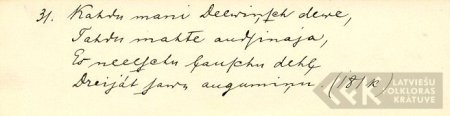 31. Kahdu mani Deewinsch dewe,
Tahdu mahte audsinaja,
Es neeeschu ļauschu dehļ
Dreijāt sawu augumiņu. (181k)
LATVIEŠU
FOLKLORAS
KRĀTUVE